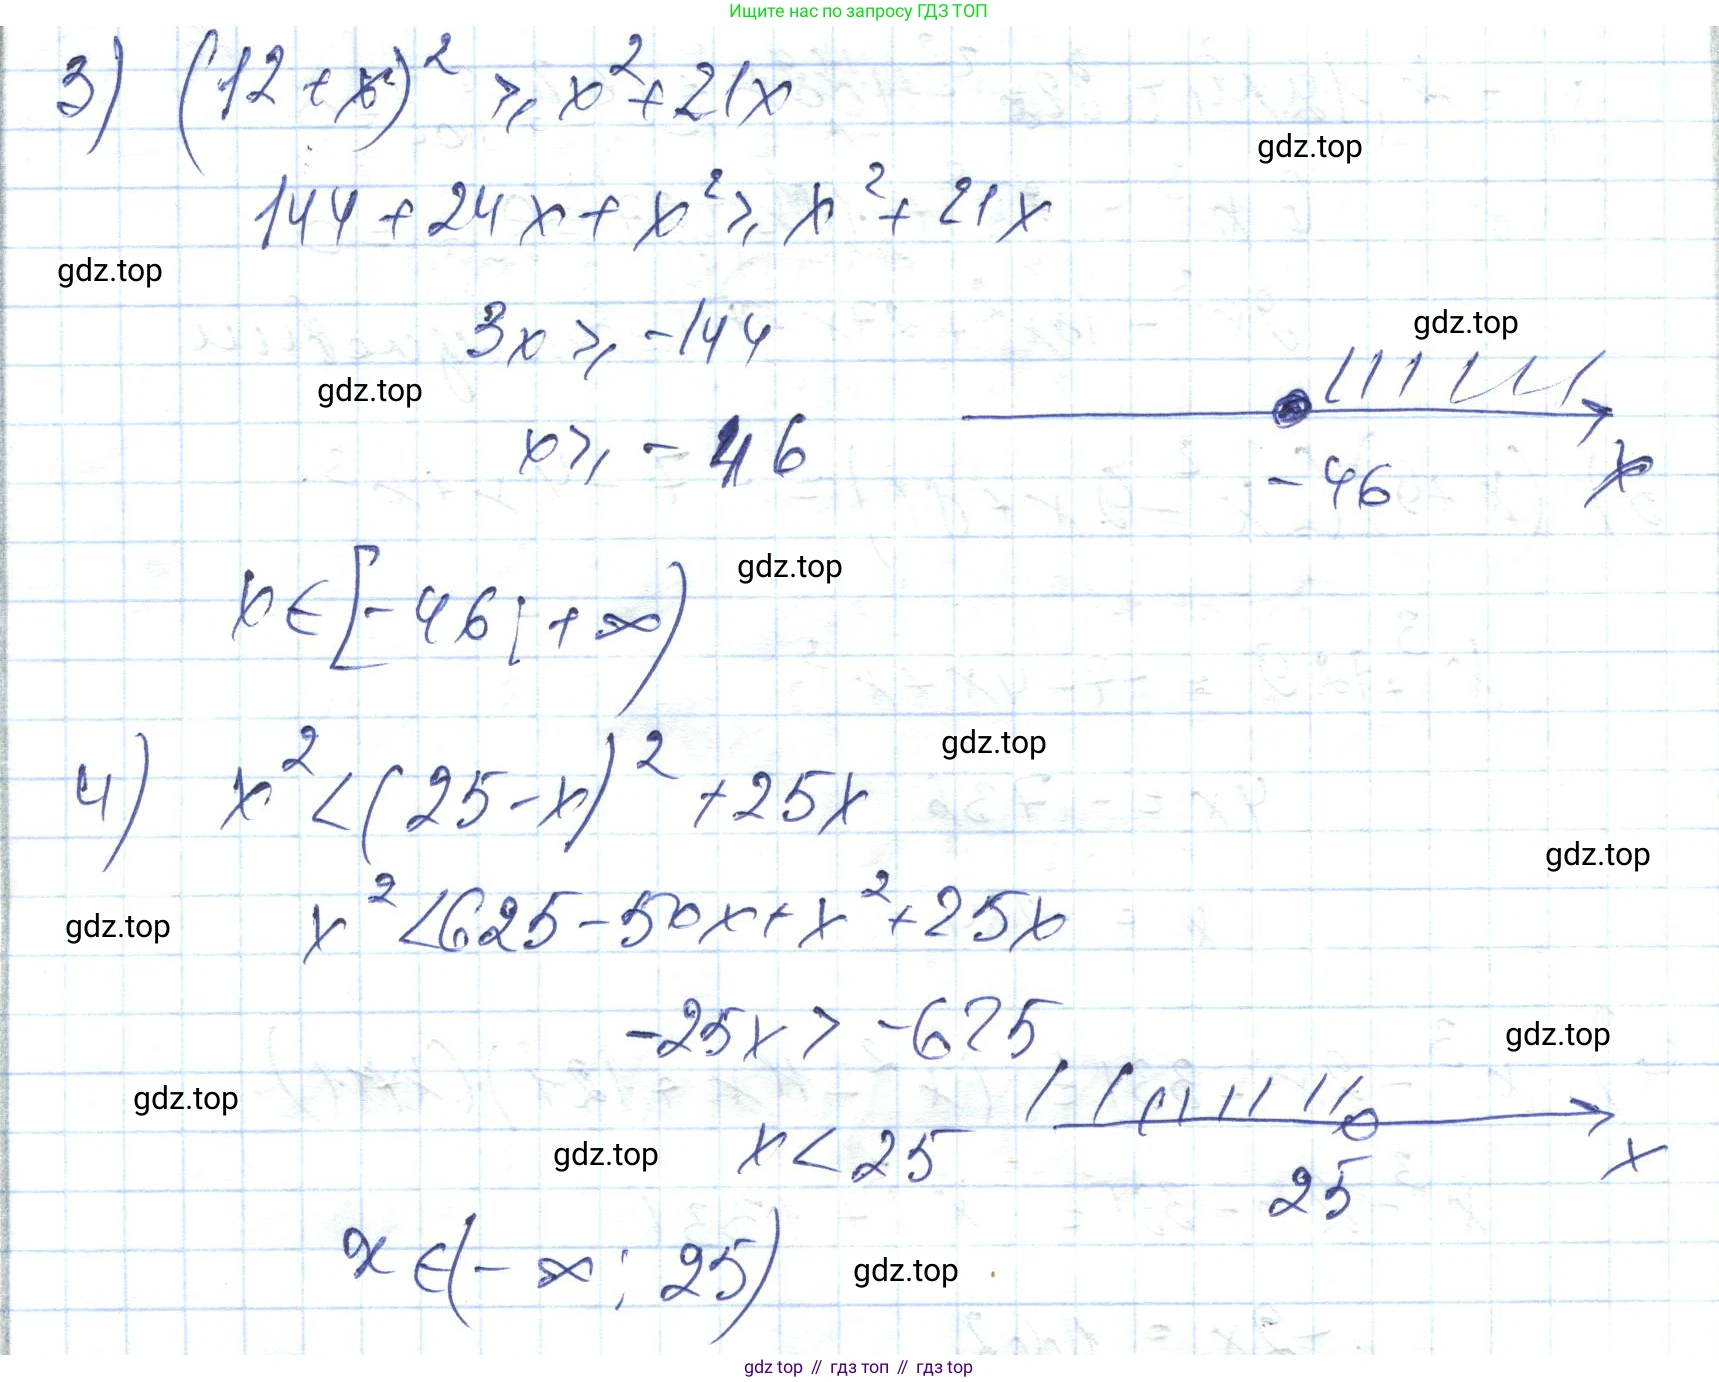 Ищите нас по запросу ГДЗ ТОП
3) (12 + x)² ⩾ x² + 21x
gdz.top
144 + 24x + x² ⩾ x² + 21x
gdz.top
gdz.top
3x ⩾ -144
gdz.top
x ⩾ - 46
-46 x
gdz.top
x ∈ [-46; +∞)
gdz.top
4) x² < (25 - x)² + 25x
gdz.top
gdz.top
x² < 625 - 50x + x² + 25x
-25x > -625
gdz.top
gdz.top
gdz.top
x < 25
25 x
x ∈ (-∞; 25)
gdz.top
gdz top // гдз топ // гдз top